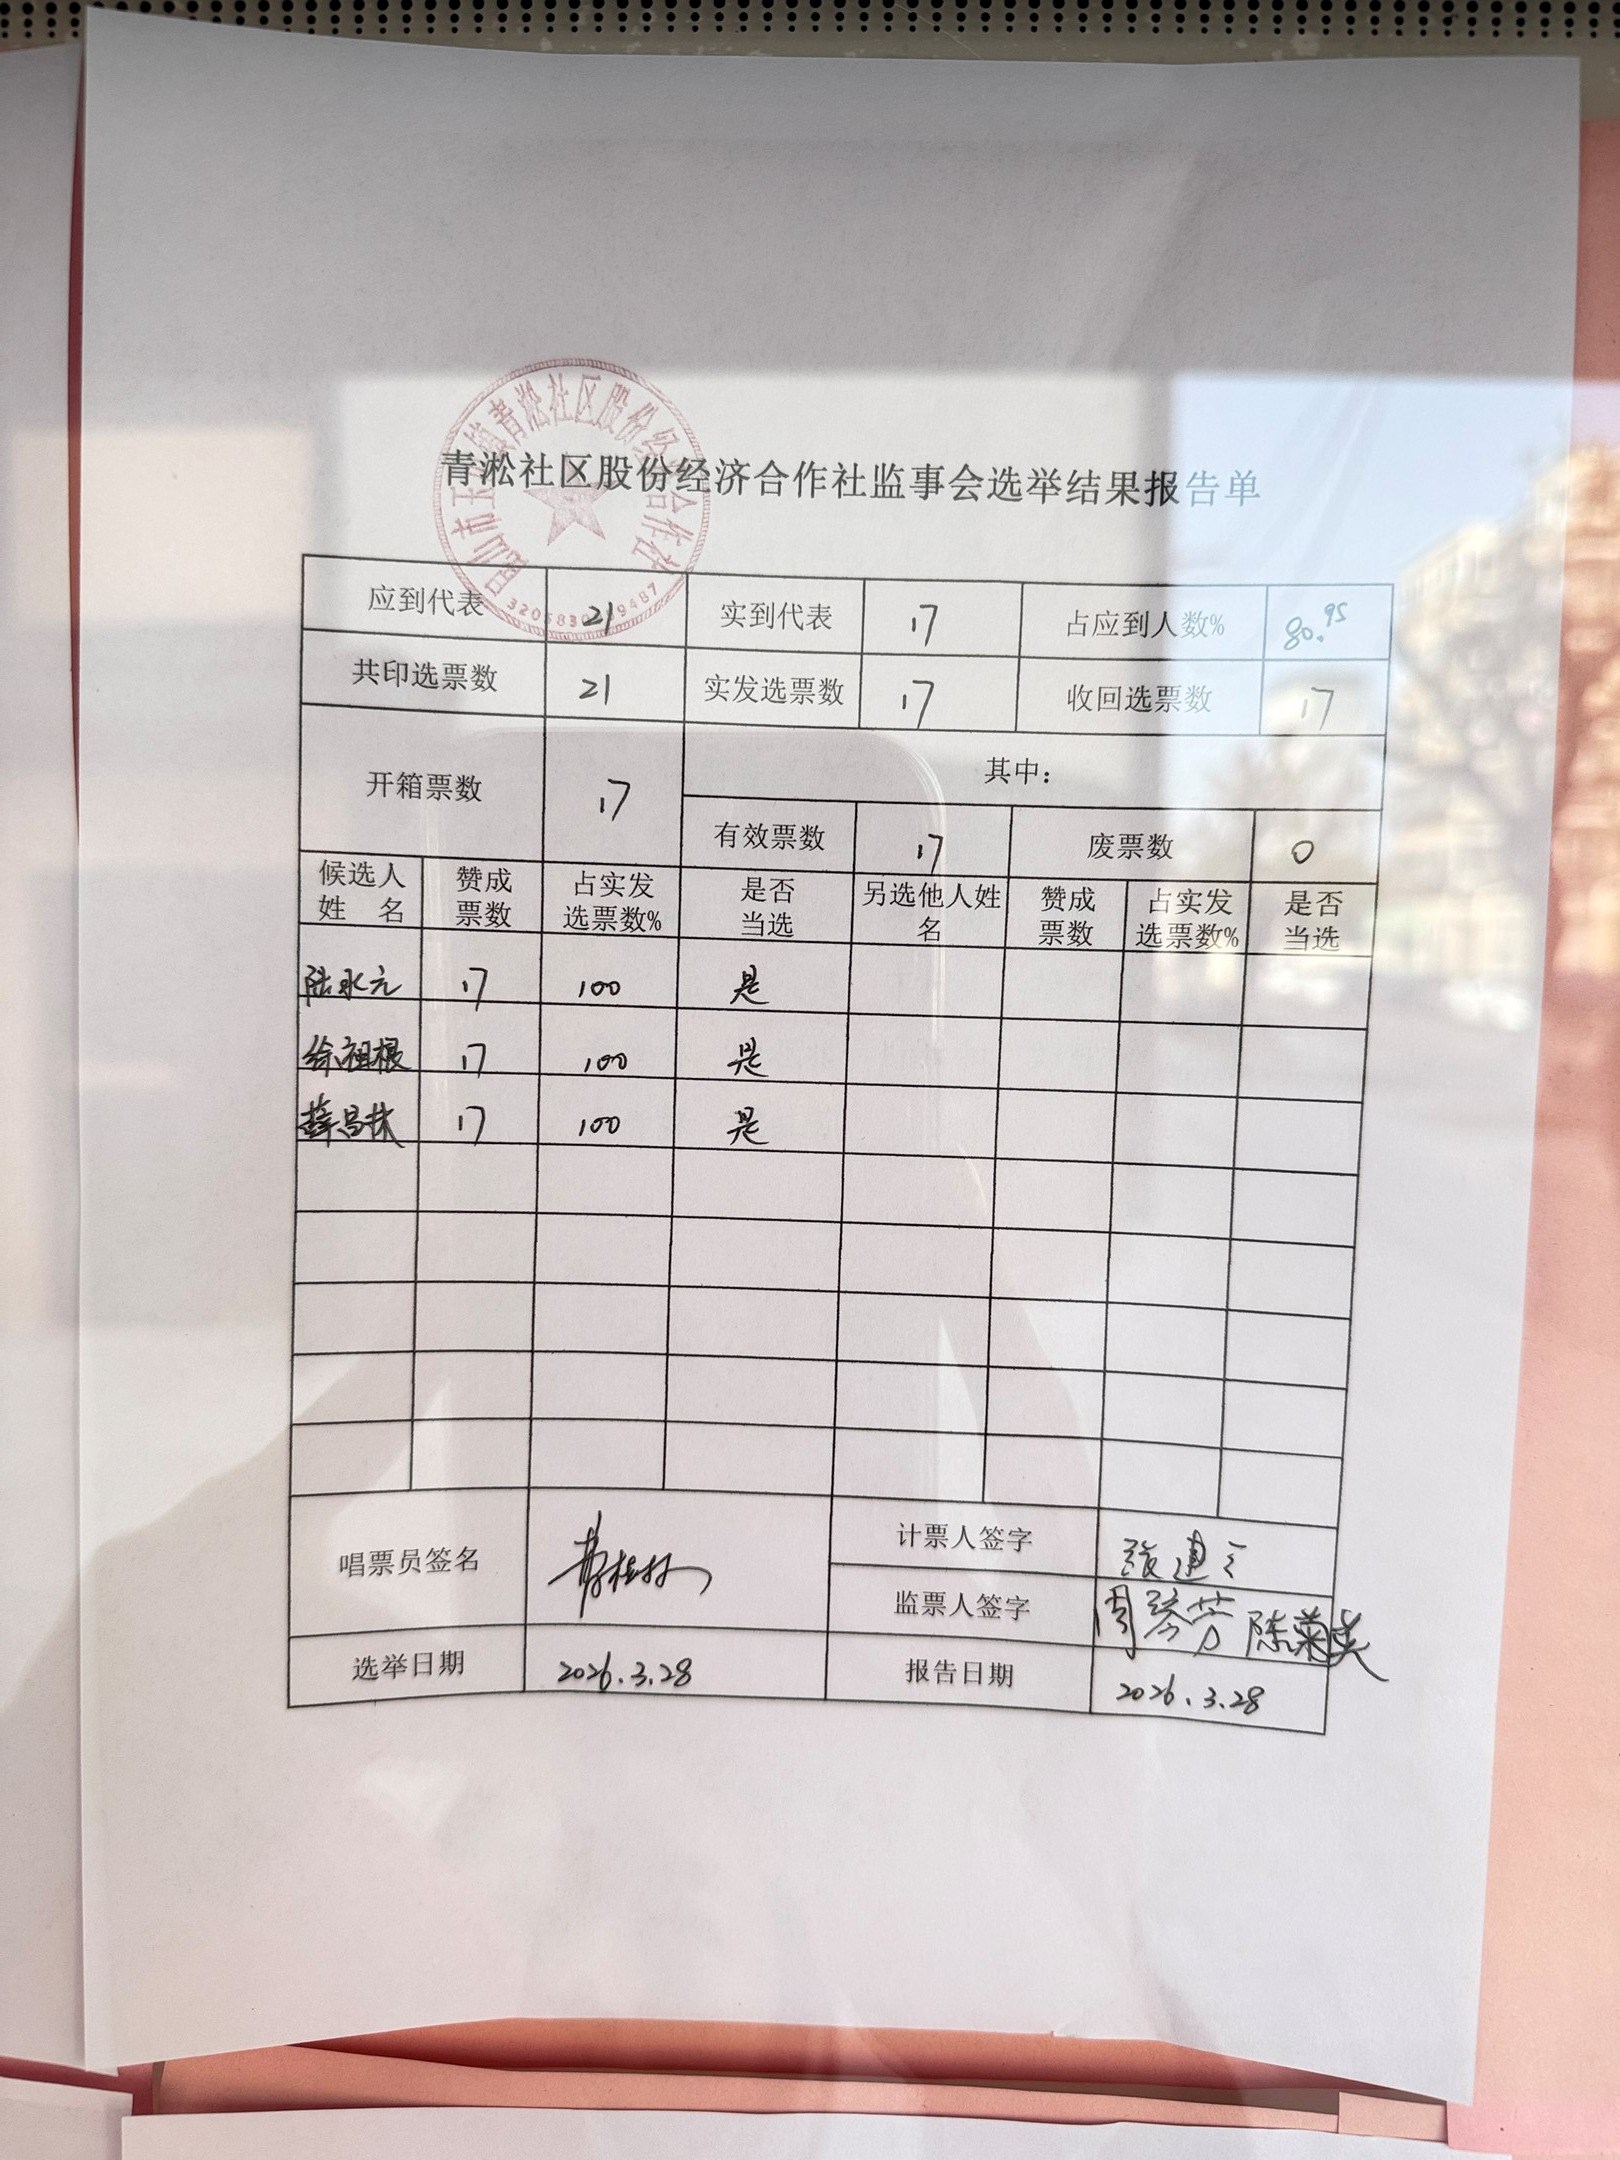 昆山市玉山镇青淞社区股份经济合作社
青淞社区股份经济合作社监事会选举结果报告单
应到代表 21 实到代表 17 占应到人数% 80.95
共印选票数 21 实发选票数 17 收回选票数 17
开箱票数 17 其中：
有效票数 17 废票数 0
候选人姓 名 赞成票数 占实发选票数% 是否当选 另选他人姓名 赞成票数 占实发选票数% 是否当选
陆永元 17 100 是
徐祖根 17 100 是
薛昌林 17 100 是
唱票员签名 计票人签字
监票人签字 周琴芳 陈菊英
选举日期 2026.3.28 报告日期 2026.3.28